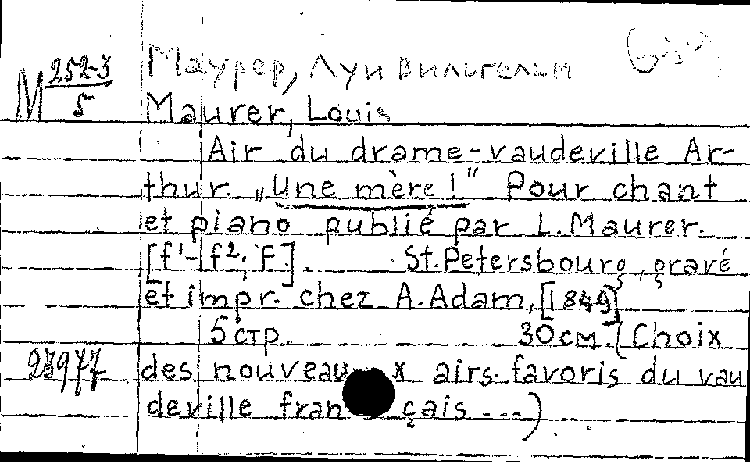 М 252-3/5
Маурер, Луи Вильгельм
Maurer, Louis
Air du drame-vaudeville Ar-
thur „Une mère!" Pour chant
et piano publié par L. Maurer.
[f¹-f²; F]. St. Petersbourg, gravé
et impr. chez A. Adam, [1849]
5 стр. 30 см. (Choix
27977 des nouveaux airs favoris du vau
deville français ...)